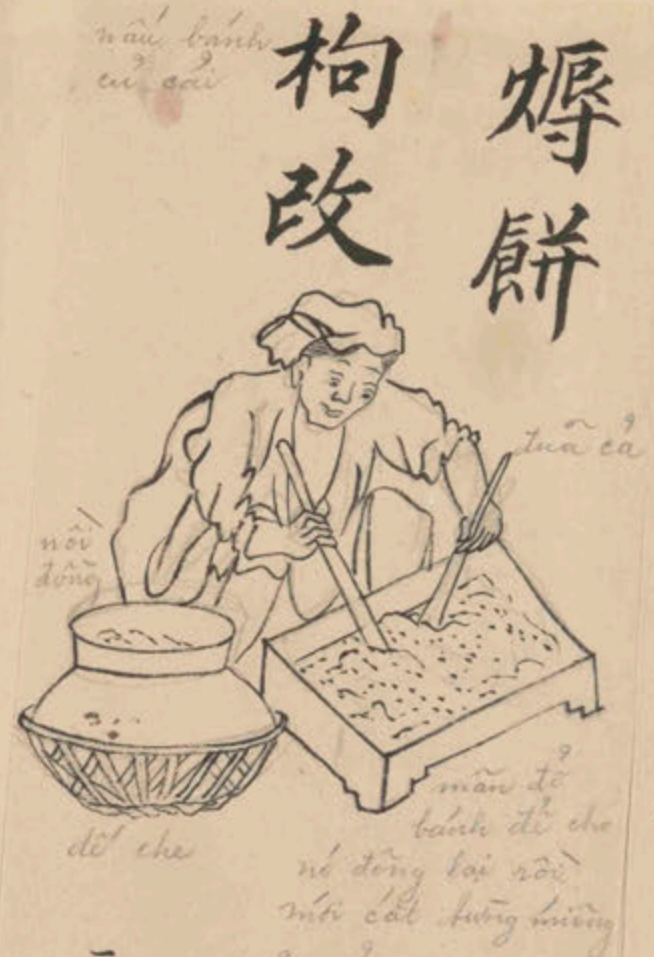 餅
枸改
nấu bánh
củ cải
đuã cả
nồi
đồng
dế che
đổ
bánh để cho
nó đông lại rồi
mới cắt từng miếng